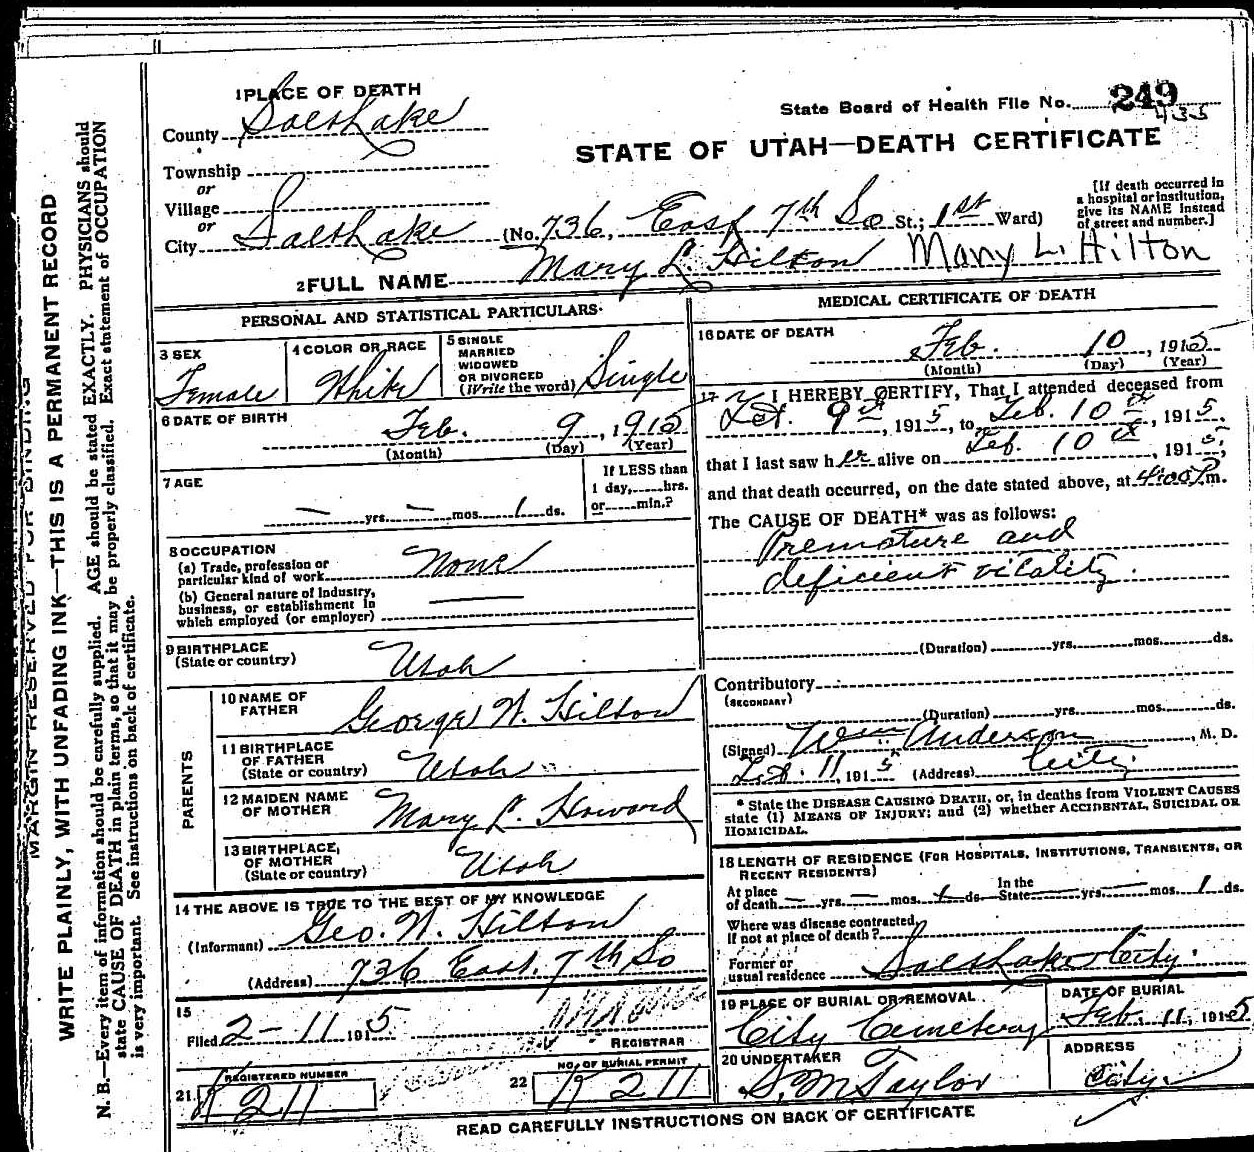 1 PLACE OF DEATH
County Salt Lake
Township
or
Village
or
City Salt Lake (No. 736, East 7th So St.; 1st Ward)
State Board of Health File No. 249
435
STATE OF UTAH—DEATH CERTIFICATE
[If death occurred in
a hospital or institution,
give its NAME instead
of street and number.]
2 FULL NAME Mary L. Hilton Mary L. Hilton
PERSONAL AND STATISTICAL PARTICULARS
3 SEX
Female
4 COLOR OR RACE
White
5 SINGLE
MARRIED
WIDOWED
OR DIVORCED
(Write the word) Single
6 DATE OF BIRTH
Feb. 9, 1915
(Month) (Day) (Year)
7 AGE
— yrs. — mos. 1 ds.
If LESS than
1 day, hrs.
or min.?
8 OCCUPATION
(a) Trade, profession or
particular kind of work None
(b) General nature of Industry,
business, or establishment in
which employed (or employer)
9 BIRTHPLACE
(State or country) Utah
PARENTS
10 NAME OF
FATHER George W. Hilton
11 BIRTHPLACE
OF FATHER
(State or country) Utah
12 MAIDEN NAME
OF MOTHER Mary L. Howard
13 BIRTHPLACE,
OF MOTHER
(State or country) Utah
14 THE ABOVE IS TRUE TO THE BEST OF MY KNOWLEDGE
(Informant) Geo. W. Hilton
(Address) 736 East. 7th So
15
Filed 2-11 1915
REGISTRAR
21. REGISTERED NUMBER
K 211
22 NO. OF BURIAL PERMIT
K 211
MEDICAL CERTIFICATE OF DEATH
16 DATE OF DEATH
Feb. 10, 1915
(Month) (Day) (Year)
17 I HEREBY CERTIFY, That I attended deceased from
Feb. 9th, 1915, to Feb. 10th, 1915,
that I last saw her alive on Feb. 10th, 1915,
and that death occurred, on the date stated above, at 4:00 P m.
The CAUSE OF DEATH* was as follows:
Premature and
deficient vitality.
(Duration) yrs. mos. ds.
Contributory
(SECONDARY)
(Duration) yrs. mos. ds.
(Signed) Wm Anderson, M. D.
Feb. 11, 1915 (Address) City
* State the DISEASE CAUSING DEATH, or, in deaths from VIOLENT CAUSES
state (1) MEANS OF INJURY; and (2) whether ACCIDENTAL, SUICIDAL OR
HOMICIDAL.
18 LENGTH OF RESIDENCE (FOR HOSPITALS, INSTITUTIONS, TRANSIENTS, OR
RECENT RESIDENTS)
At place
of death — yrs. — mos. 1 ds.
In the
State — yrs. — mos. 1 ds.
Where was disease contracted,
if not at place of death?
Former or
usual residence Salt Lake City.
19 PLACE OF BURIAL OR REMOVAL
City Cemetery
DATE OF BURIAL
Feb. 11, 1915
20 UNDERTAKER
S. M Taylor
ADDRESS
City.
READ CAREFULLY INSTRUCTIONS ON BACK OF CERTIFICATE
MARGIN RESERVED FOR BINDING
WRITE PLAINLY, WITH UNFADING INK—THIS IS A PERMANENT RECORD
N. B.—Every item of information should be carefully supplied. AGE should be stated EXACTLY. PHYSICIANS should
state CAUSE OF DEATH in plain terms, so that it may be properly classified. Exact statement of OCCUPATION
is very important. See instructions on back of certificate.